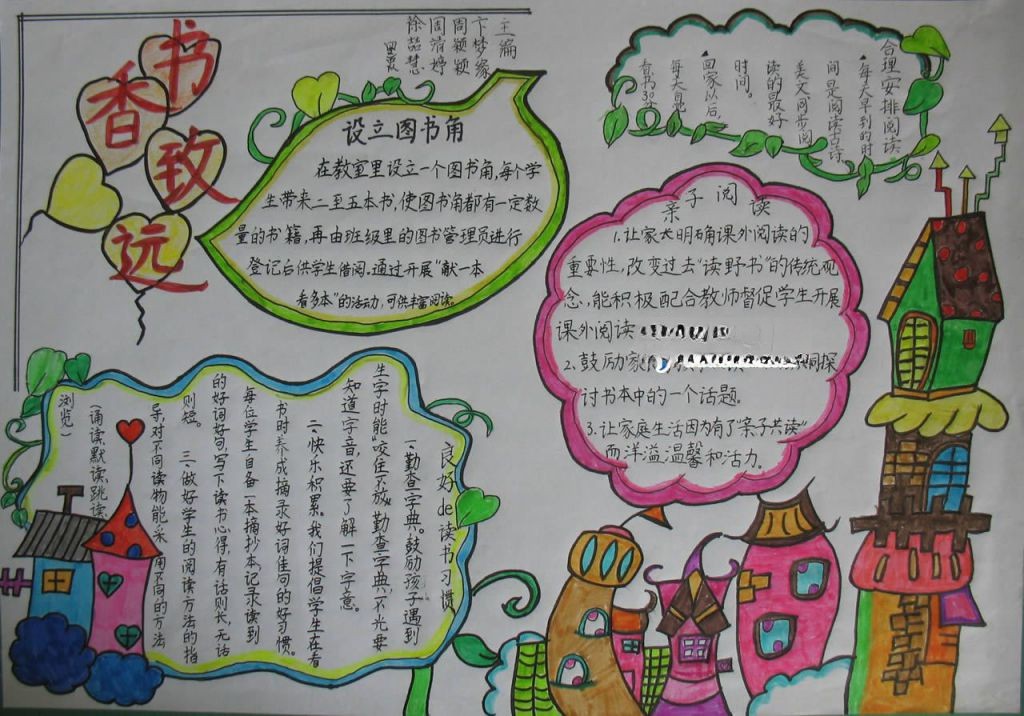 书
香
致
远
主编
卞梦缘
周颖颖
周清婷
徐喆慧
设立图书角
在教室里设立一个图书角,每个学
生带来二至五本书,使图书角都有一定数
量的书籍,再由班级里的图书管理员进行
登记后供学生借阅。通过开展“献一本
看多本”的活动,可供丰富阅读。
合理安排阅读
▲每天早到的时
间是阅读古诗
美文阿书阅
读的最好
时间。
▲回家以后,
每天自觉
看书30分
亲子阅读
1.让家长明确课外阅读的
重要性,改变过去“读野书”的传统观
念,能积极配合教师督促学生开展
课外阅读
2.鼓励家
同探
讨书本中的一个话题。
3.让家庭生活因为有了“亲子共读”
而洋溢温馨和活力。
良好de读书习惯
一、勤查字典。鼓励孩子遇到
生字时能“咬住不放,勤查字典,不光要
知道字音,还要了解一下字意。
二、快乐积累。我们提倡学生在看
书时养成摘录好词佳句的好习惯。
每位学生自备一本摘抄本,记录读到
的好词好句,写下读书心得,有话则长,无话
则短。
三、做好学生的阅读方法的指
导,对不同读物能采用不同的方法
(诵读、默读、跳读、
浏览)